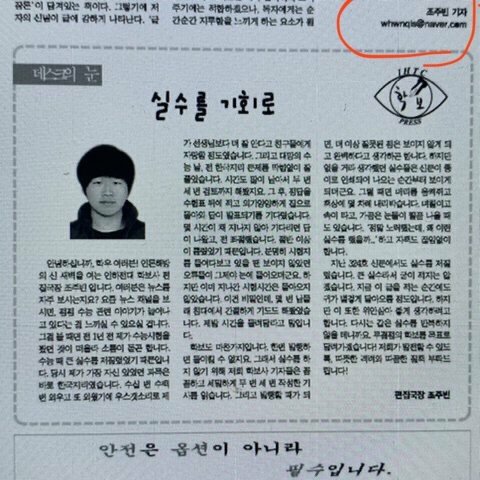 꿈돈'이 담겨있는 책이다. 그렇기에 저
자의 신념이 글에 강하게 나타난다. '글
주기에는 적합하겠으나, 독자에게는 순
순간간 지루함을 느끼게 하는 요소가 된
조주빈 기자
whwnqls@naver.com
데스크의 눈
IHTC
학보
PRESS
실수를 기회로
안녕하십니까, 학우 여러분! 인문해방
의 신 새벽을 여는 인하전대 학보사 편
집국장 조주빈 입니다. 여러분은 뉴스를
자주 보시는지요? 요즘 뉴스 채널을 보
시면, 점점 수능 관련 이야기가 늘어나
고 있다는 걸 느끼실 수 있으실 겁니다.
그걸 볼 때면 전 1년 전 제가 수능시험을
봤던 것이 떠올라 소름이 돋곤 합니다.
수능 때 큰 실수를 저질렀었기 때문입니
다. 당시 제가 가장 자신 있었던 과목은
바로 한국지리였습니다. 수십 번 수백
번 외우고 또 외웠기에 우스갯소리로 제
가 선생님보다 더 잘 안다고 친구들에게
자랑할 정도였습니다. 그리고 대망의 수
능 날, 전 한국지리 문제를 막힘없이 풀
었습니다. 시간도 많이 남아서 두 번 세
번 검토까지 해봤지요. 그 후, 정답을
수험표 뒤에 적고 의기양양하게 집으로
돌아와 답이 발표되기를 기다렸습니다.
몇 시간이 채 지나지 않아 기다리던 답
이 나왔고, 전 좌절했습니다. 절반 이상
이 틀렸었기 때문입니다. 분명히 시험지
를 들여다보고 있을 땐 보이지 않았던
오류들이 그제야 눈에 들어오더군요. 하
지만 이미 지나간 시험시간은 돌아오지
않았습니다. 이건 비밀인데, 몇 번 남몰
래 침대에서 간절하게 기도도 해봤었습
니다. 제발 시간을 돌려달라고 말입니
다.
학보도 마찬가지입니다. 한번 발행하
면 돌이킬 수 없지요. 그래서 실수를 하
지 않기 위해 저희 학보사 기자들은 꼼
꼼하고 세밀하게 두 번 세 번 작성한 기
사를 읽습니다. 그리고 발행할 때가 되
면, 더 이상 잘못된 점은 보이지 않게 되
고 완벽하다고 생각하곤 합니다. 하지만
없을 거라 생각했던 실수들은 신문이 종
이로 인쇄되어 나오는 순간부터 보이게
되더군요. 그럴 때면 머리를 움켜쥐고
책상에 몇 차례 내리칩니다. 데굴이고
속이 타고, 가끔은 눈물이 찔끔 나올 때
도 있습니다. '정말 노력했는데, 왜 이런
실수를 했을까...' 하고 자책도 끊임없이
합니다.
지난 324호 신문에서도 실수를 저질
렀습니다. 큰 실수라서 굳이 적지는 않
겠습니다. 지금 이 글을 적는 순간에도
귀가 빨갛게 달아오를 정도입니다. 하지
만 이 또한 위안삼아 좋게 생각하려고
합니다. 다시는 같은 실수를 반복하지
않을 테니까요. 무결점의 학보를 목표로
달려가겠습니다! 저희가 발전할 수 있도
록, 따뜻한 격려와 따끔한 질책 부탁드
립니다!
편집국장 조주빈
안전은 옵션이 아니라
필수입니다.